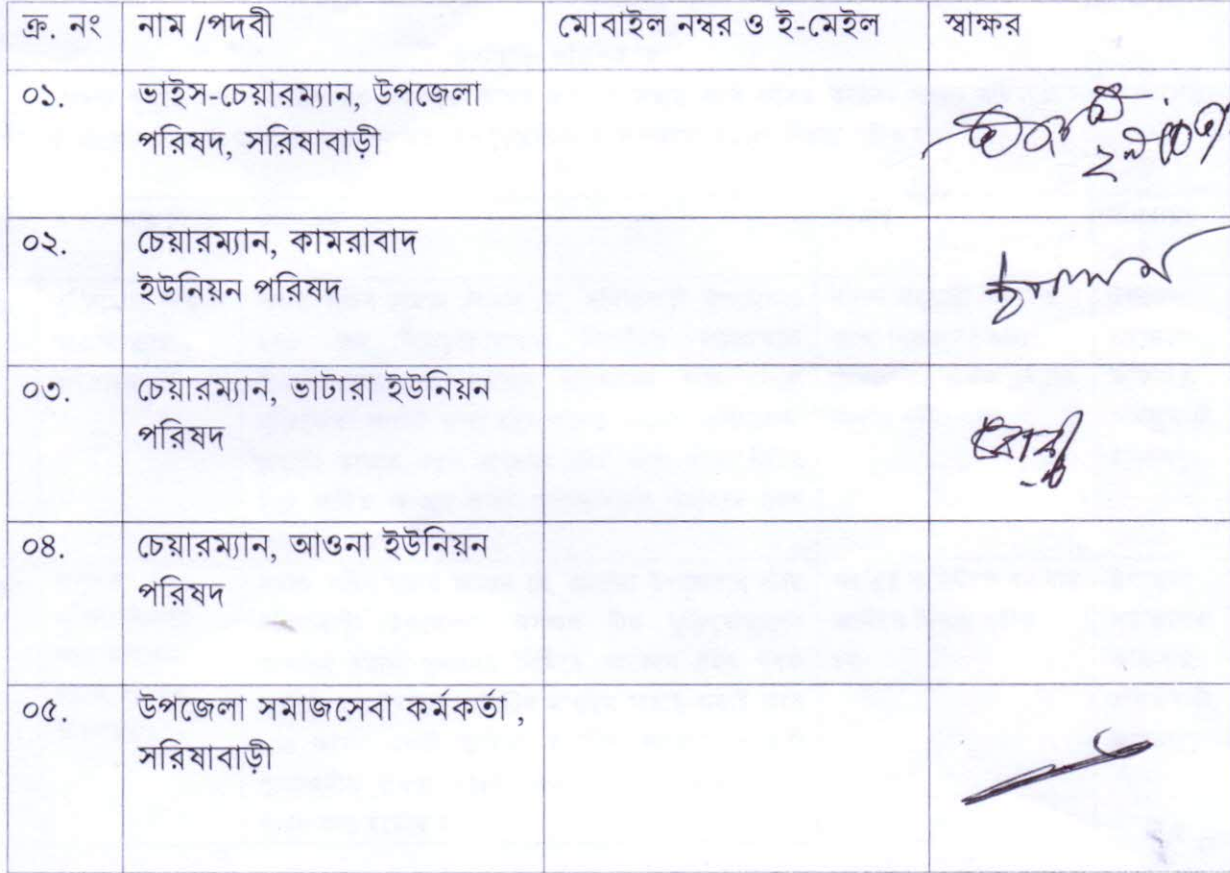 ক্র. নং নাম /পদবী মোবাইল নম্বর ও ই-মেইল স্বাক্ষর
০১. ভাইস-চেয়ারম্যান, উপজেলা
পরিষদ, সরিষাবাড়ী
০২. চেয়ারম্যান, কামরাবাদ
ইউনিয়ন পরিষদ
০৩. চেয়ারম্যান, ভাটারা ইউনিয়ন
পরিষদ
০৪. চেয়ারম্যান, আওনা ইউনিয়ন
পরিষদ
০৫. উপজেলা সমাজসেবা কর্মকর্তা ,
সরিষাবাড়ী